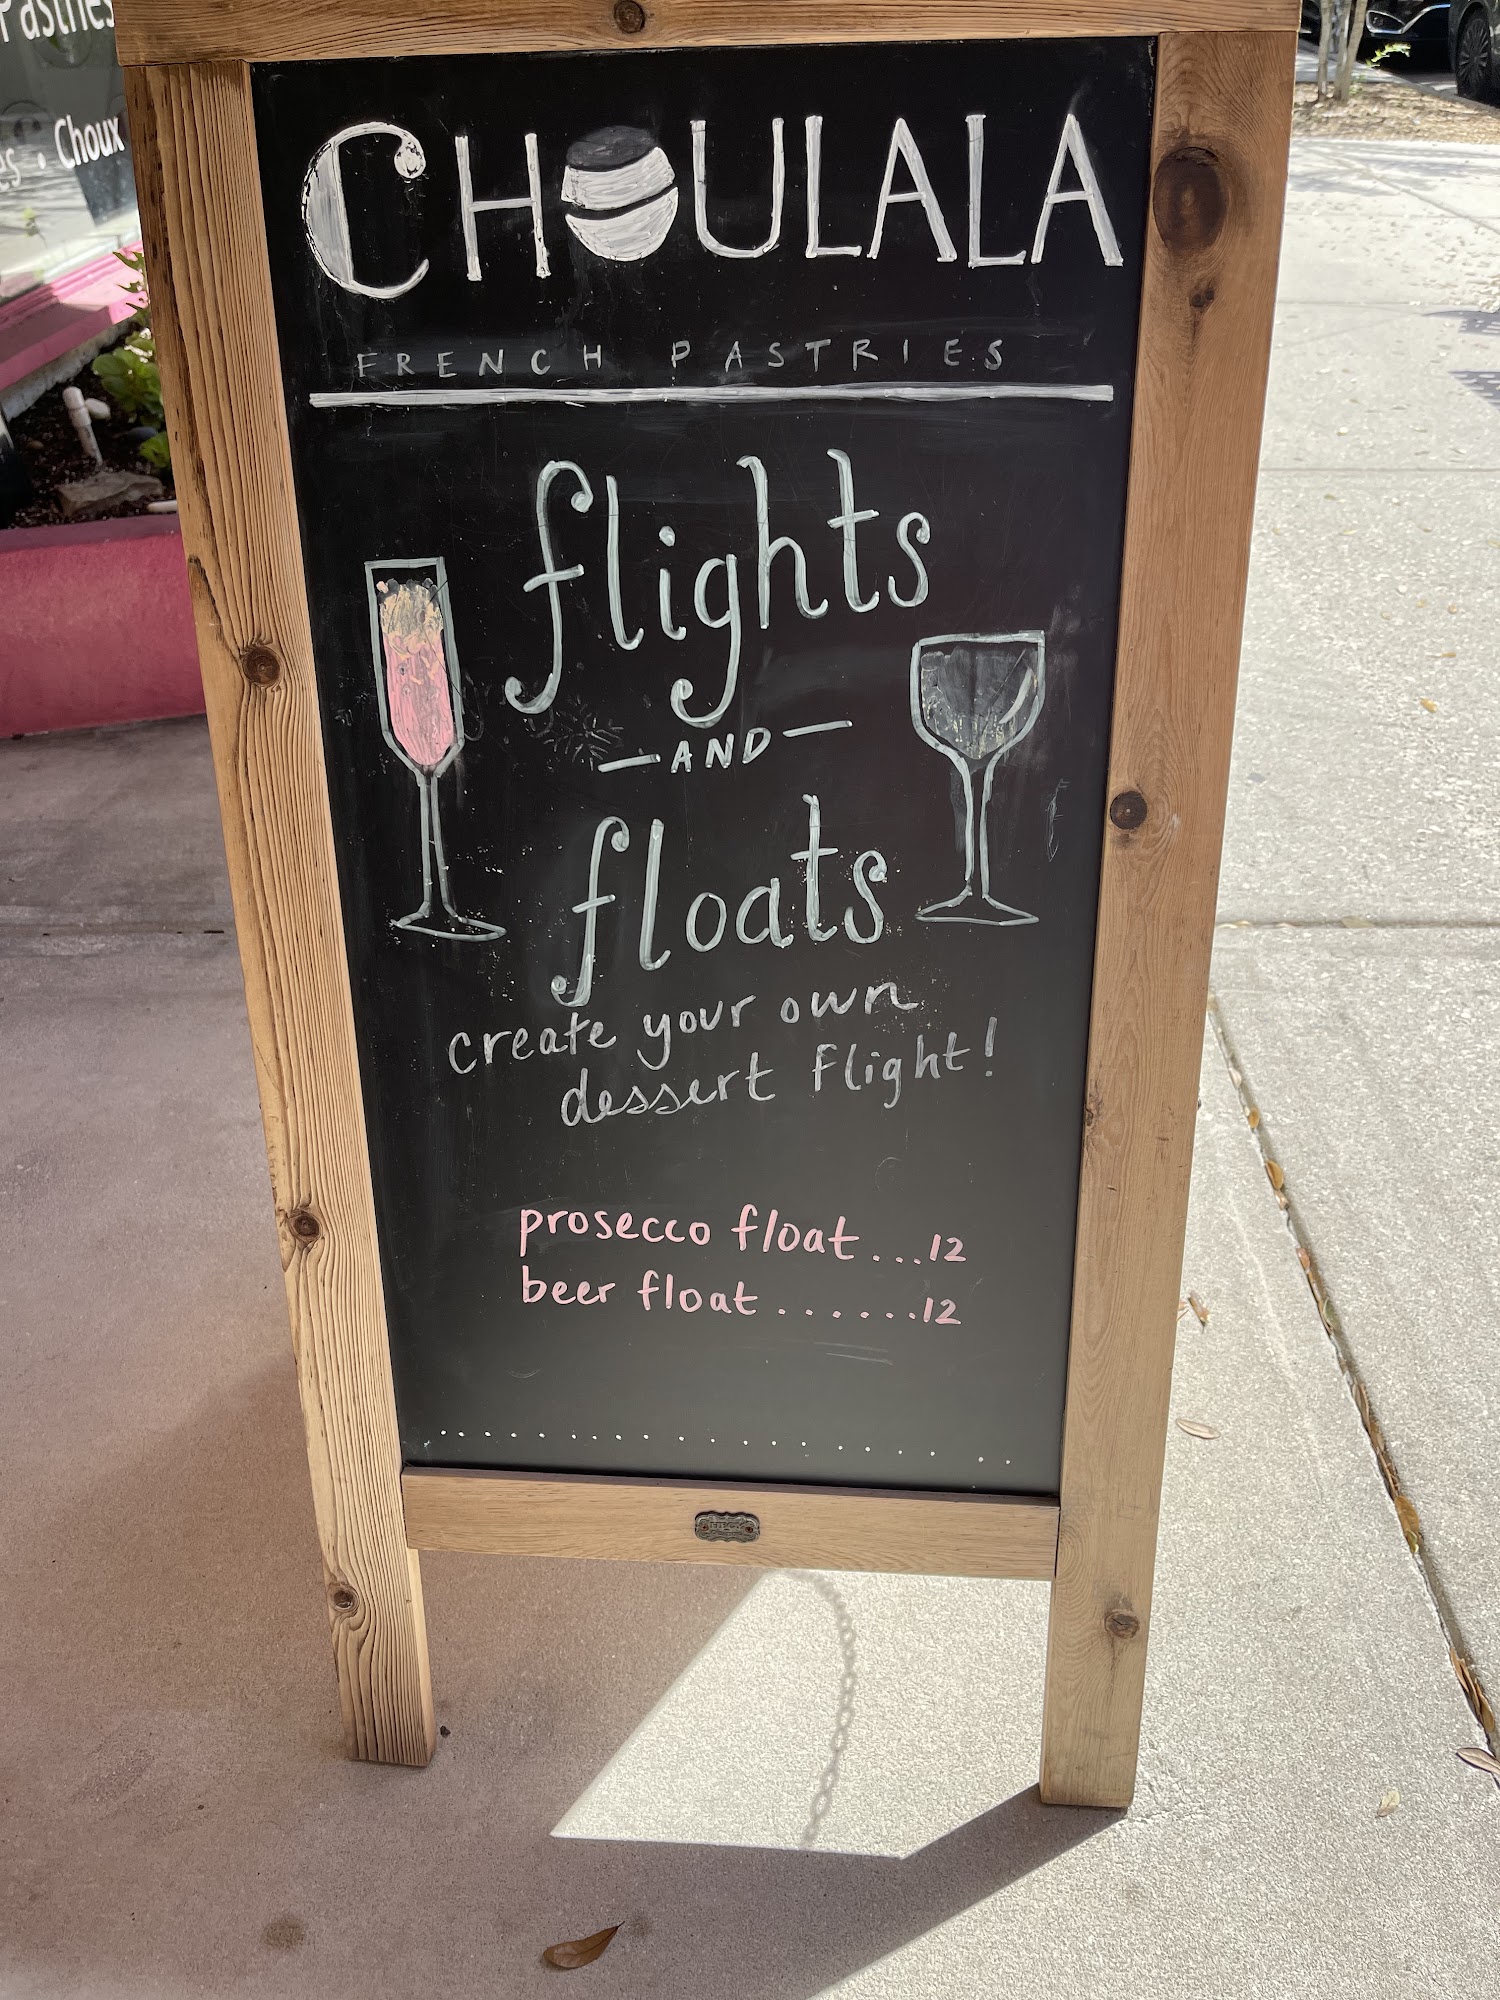 Pastries
Choux
CHOULALA
FRENCH PASTRIES
flights
—AND—
floats
create your own
dessert flight!
prosecco float...12
beer float.......12